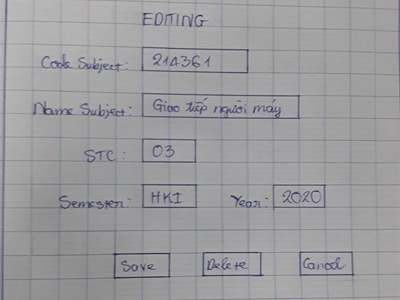 EDITING
Code Subject: 214361
Name Subject: Giao tiếp người máy
STC: 03
Semester: HKI Year: 2020
Save Delete Cancel